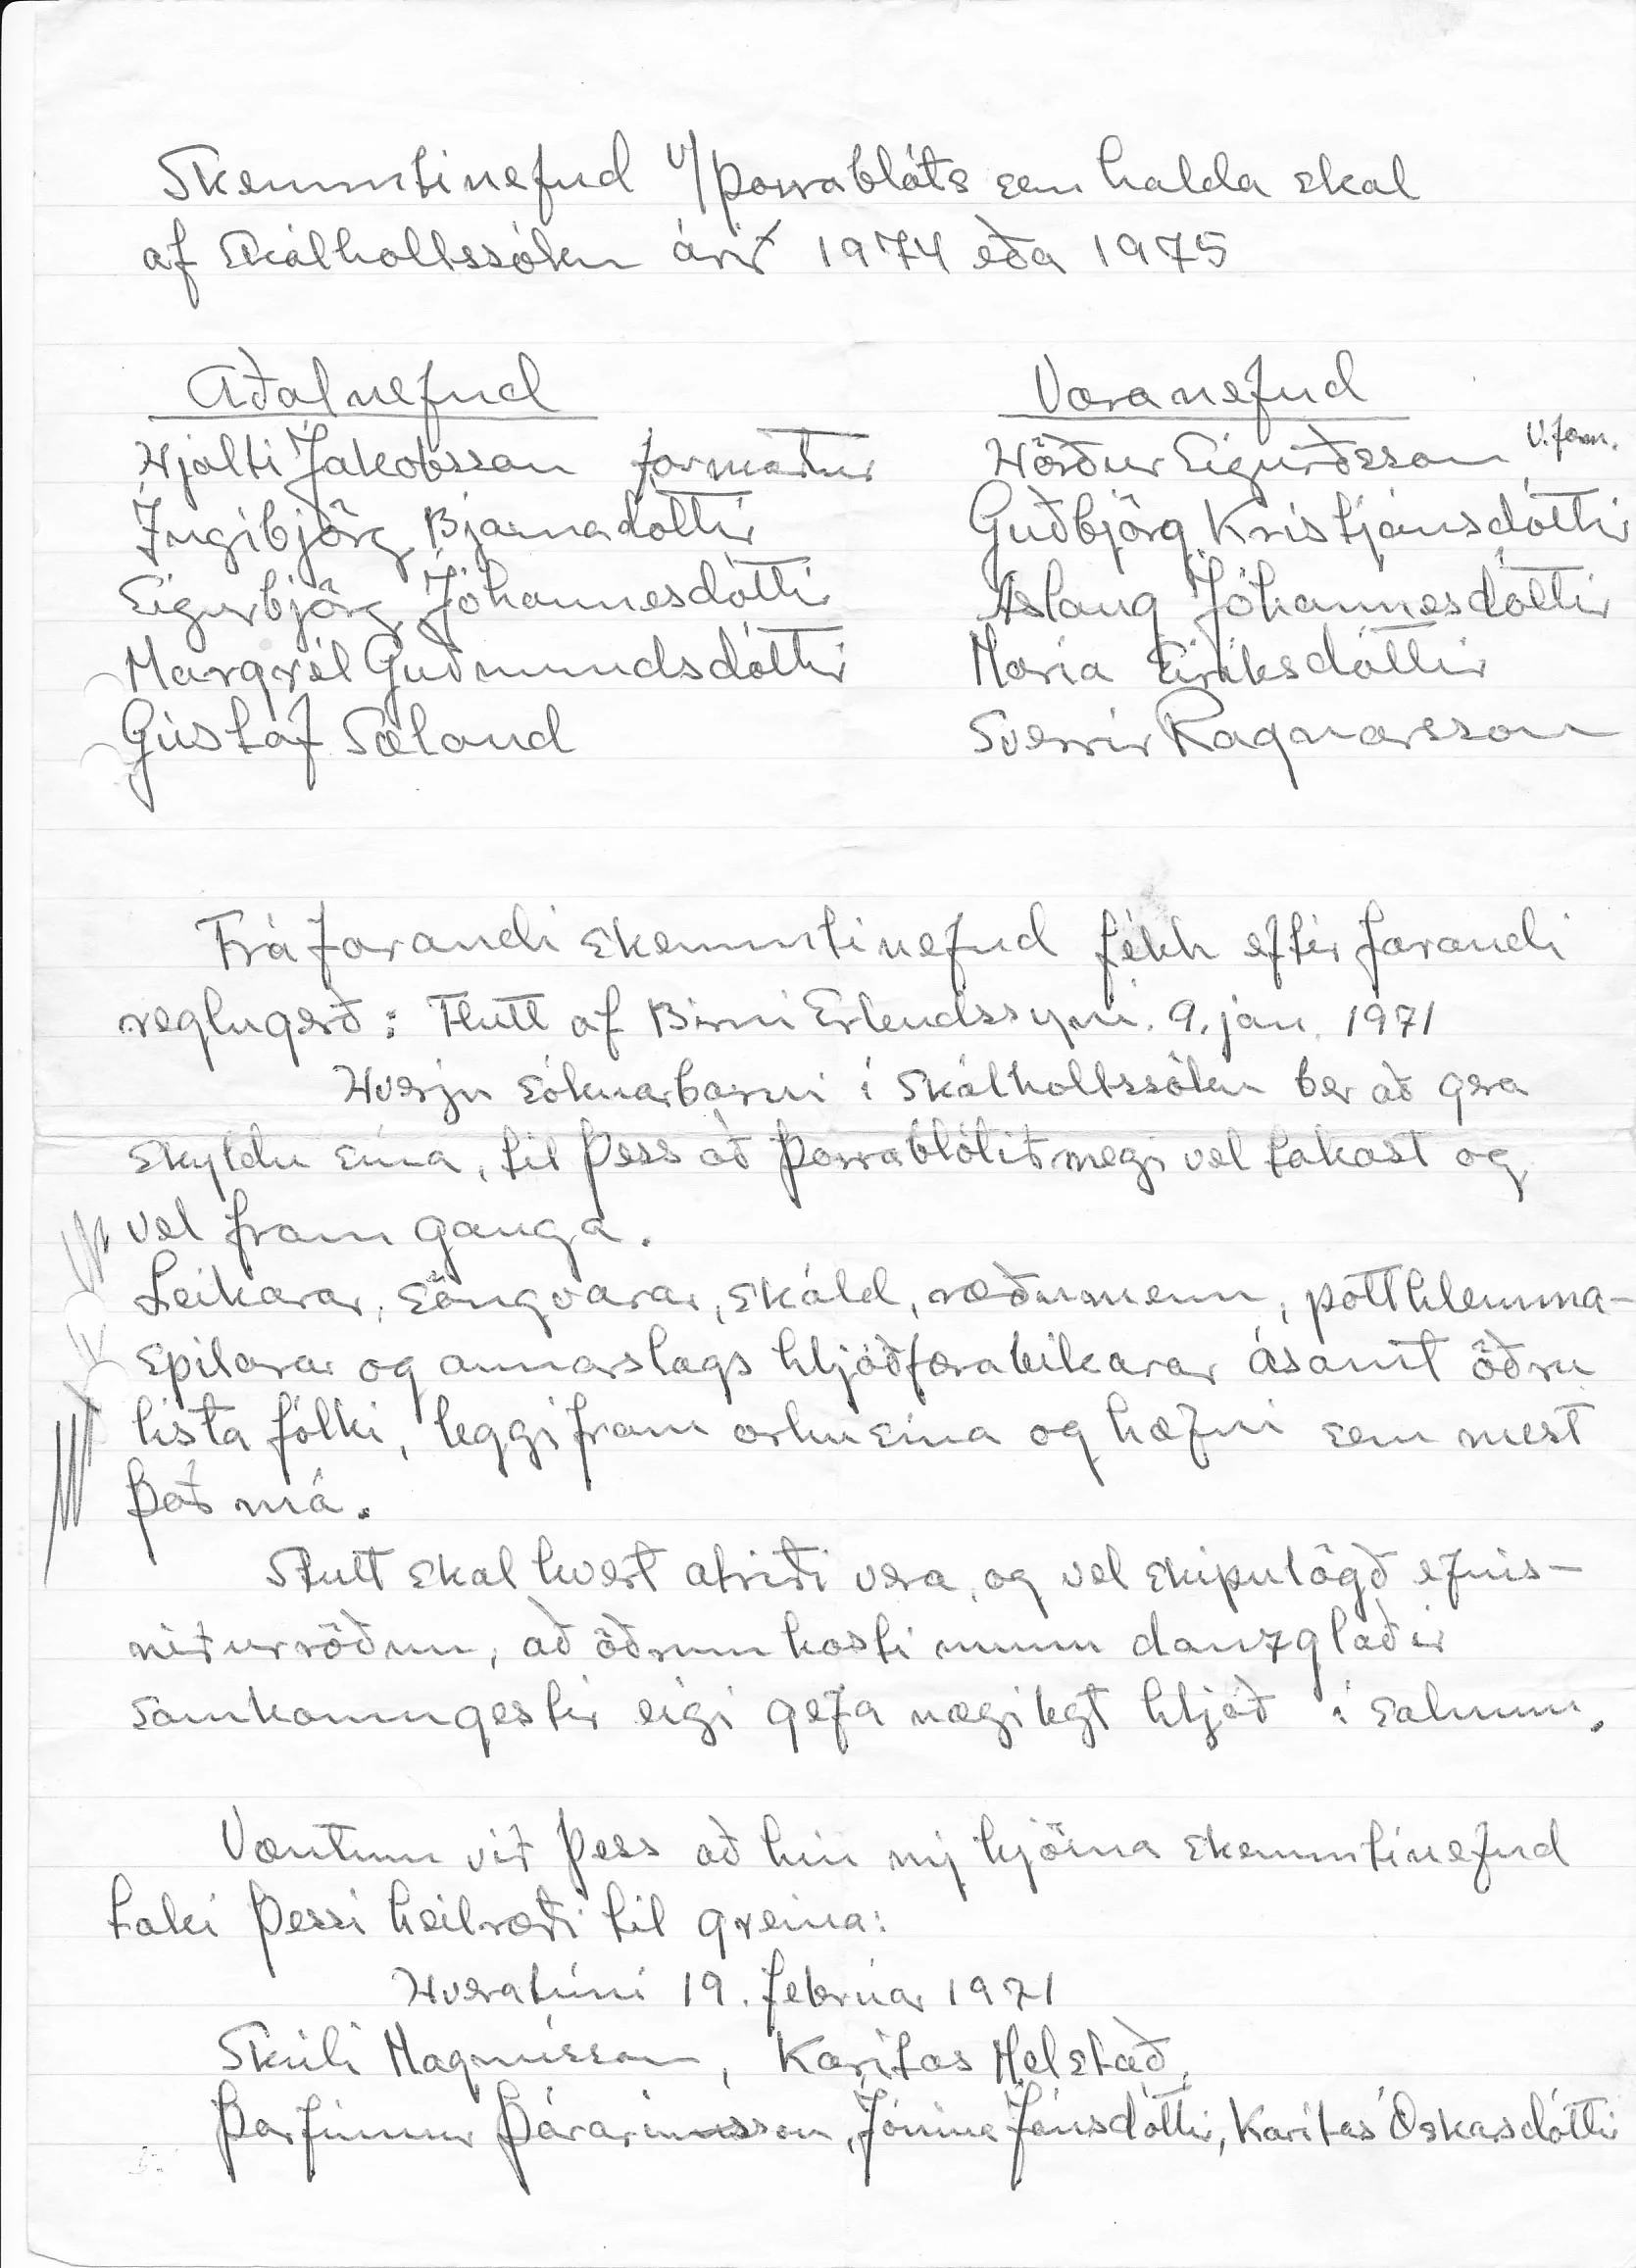 Skemmtinefnd v/þorrablóts sem halda skal
af Skálholtssókn árið 1974 eða 1975
Aðalnefnd
Varanefnd
Hjalti Jakobsson formaður
Hörður Sigurðsson v.form.
Ingibjörg Bjarnadóttir
Guðbjörg Kristjánsdóttir
Sigurbjörg Jóhannesdóttir
Áslaug Jóhannesdóttir
Margrét Guðmundsdóttir
María Eiríksdóttir
Gústaf Sæland
Sverrir Ragnarsson
Fráfarandi skemmtinefnd fékk eftir farandi
reglugerð: Flutt af Birni Erlendssyni. 9. jan. 1971
Hverju sóknarbarni í Skálholtssókn ber að gera
skyldu sína, til þess að þorrablótið megi vel takast og
vel fram ganga.
Leikarar, söngvarar, skáld, ræðumenn, potthlemma-
spilarar og annarslags hljóðfæraleikarar ásamt öðru
lista fólki, leggi fram orku sína og hæfni sem mest
það má.
Stutt skal hvert atriði vera, og vel skipulögð efnis-
niðurröðun, að öðrum kosti munu danzglaðir
samkomugestir eigi gefa nægilegt hljóð í salnum.
Væntum við þess að hin ný kjörna skemmtinefnd
taki þessi heilræði til greina:
Hveratúni 19. febrúar 1971
Skúli Magnússon, Karitas Melstað,
Þorfinnur Þórarinsson, Jónína Jónsdóttir, Karitas Óskarsdóttir